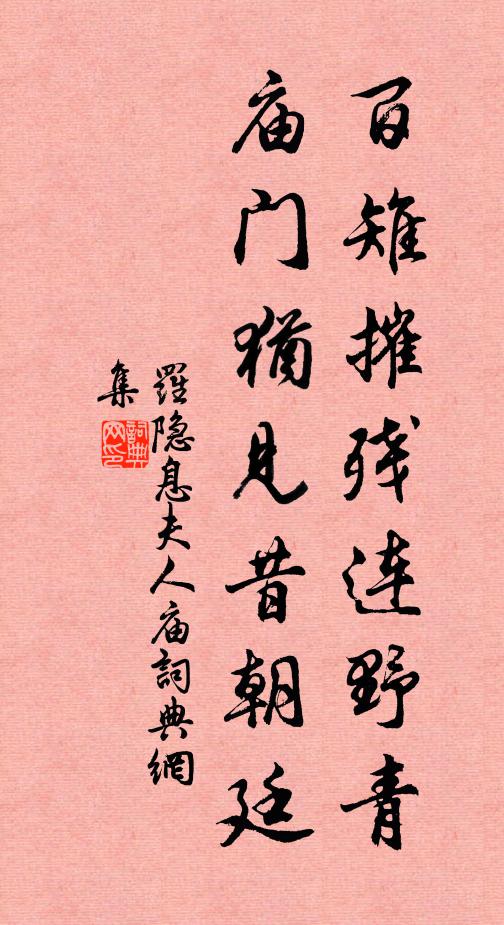 百雉摧残连野青
庙门犹见昔朝廷
羅隐息夫人庙詞典網
集
詞典
网印